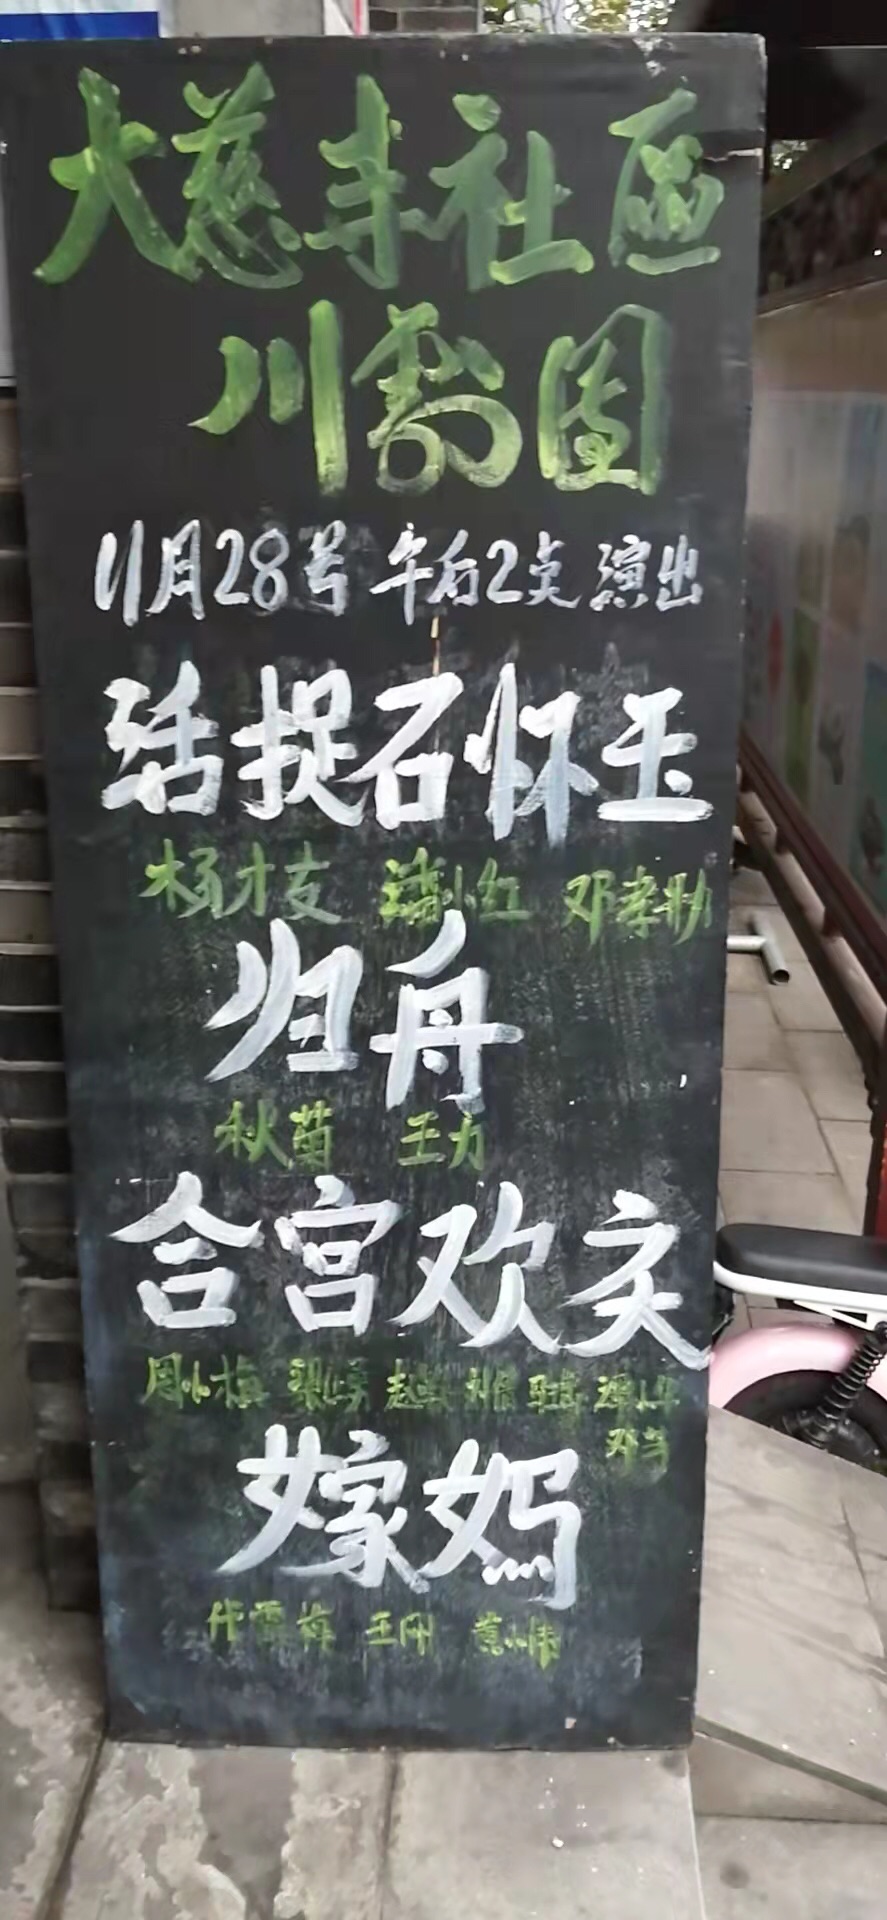 大慈寺社區
川剧团
11月28号 午后2点 演出
活捉石怀玉
杨才友 潘小红 邓孝勋
归舟
秋菊 王力
合宫欢庆
周小梅 谭小华
邓
嫁妈
王刚 黄小伟